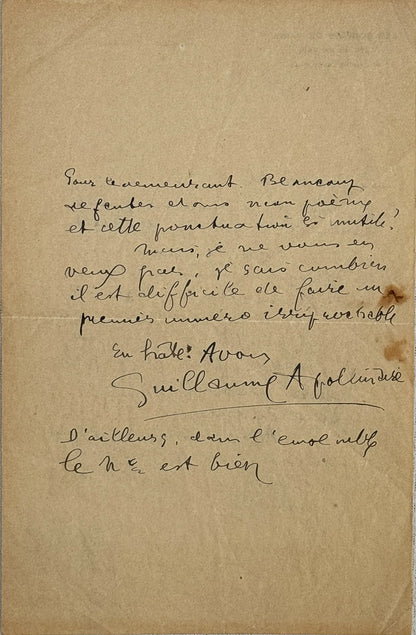 Pour le demeurant. Beaucoup
de fautes dans mon poème
et cette ponctuation si inutile!
Mais, je ne vous en
veux pas, je sais combien
il est difficile de faire un
premier numéro irréprochable
En hâte. A vous
Guillaume Apollinaire
D'ailleurs, dans l'ensemble
le No est bien